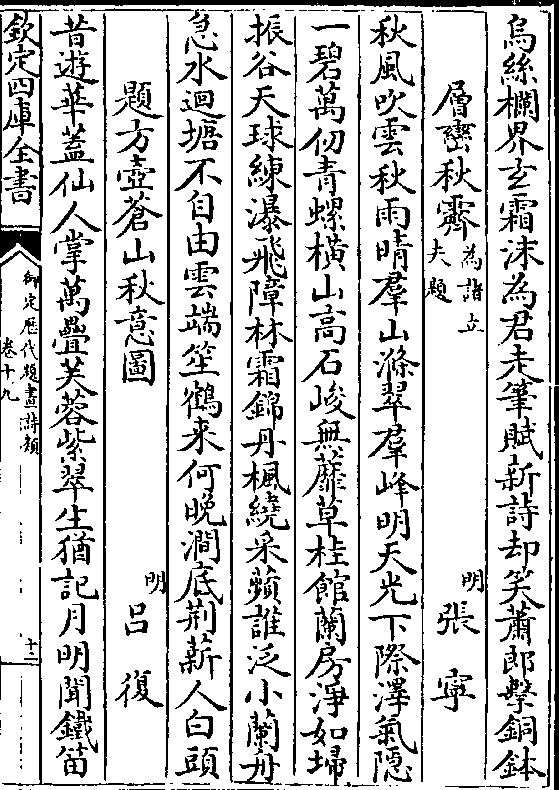 烏絲欄界玄霜沫為君走筆賦新詩却笑蕭郎擊銅鉢
層巒秋霽為諧立夫題 明 張寧
秋風吹雲秋雨晴羣山滌翠羣峰明天光下際澤氣隠
一碧萬仞青螺横山高石峻無靡草桂館蘭房浄如埽
振谷天球練瀑飛障林霜錦丹楓繞采蘋誰泛小蘭舟
急水迴塘不自由雲端笙鶴来何晚澗底荆薪人白頭
題方壺蒼山秋意圖 明 吕復
昔遊華蓋仙人掌萬疊芙蓉紫翠生猶記月明聞鐵笛
欽定四庫全書
御定歴代題畫詩類
卷十九
十二